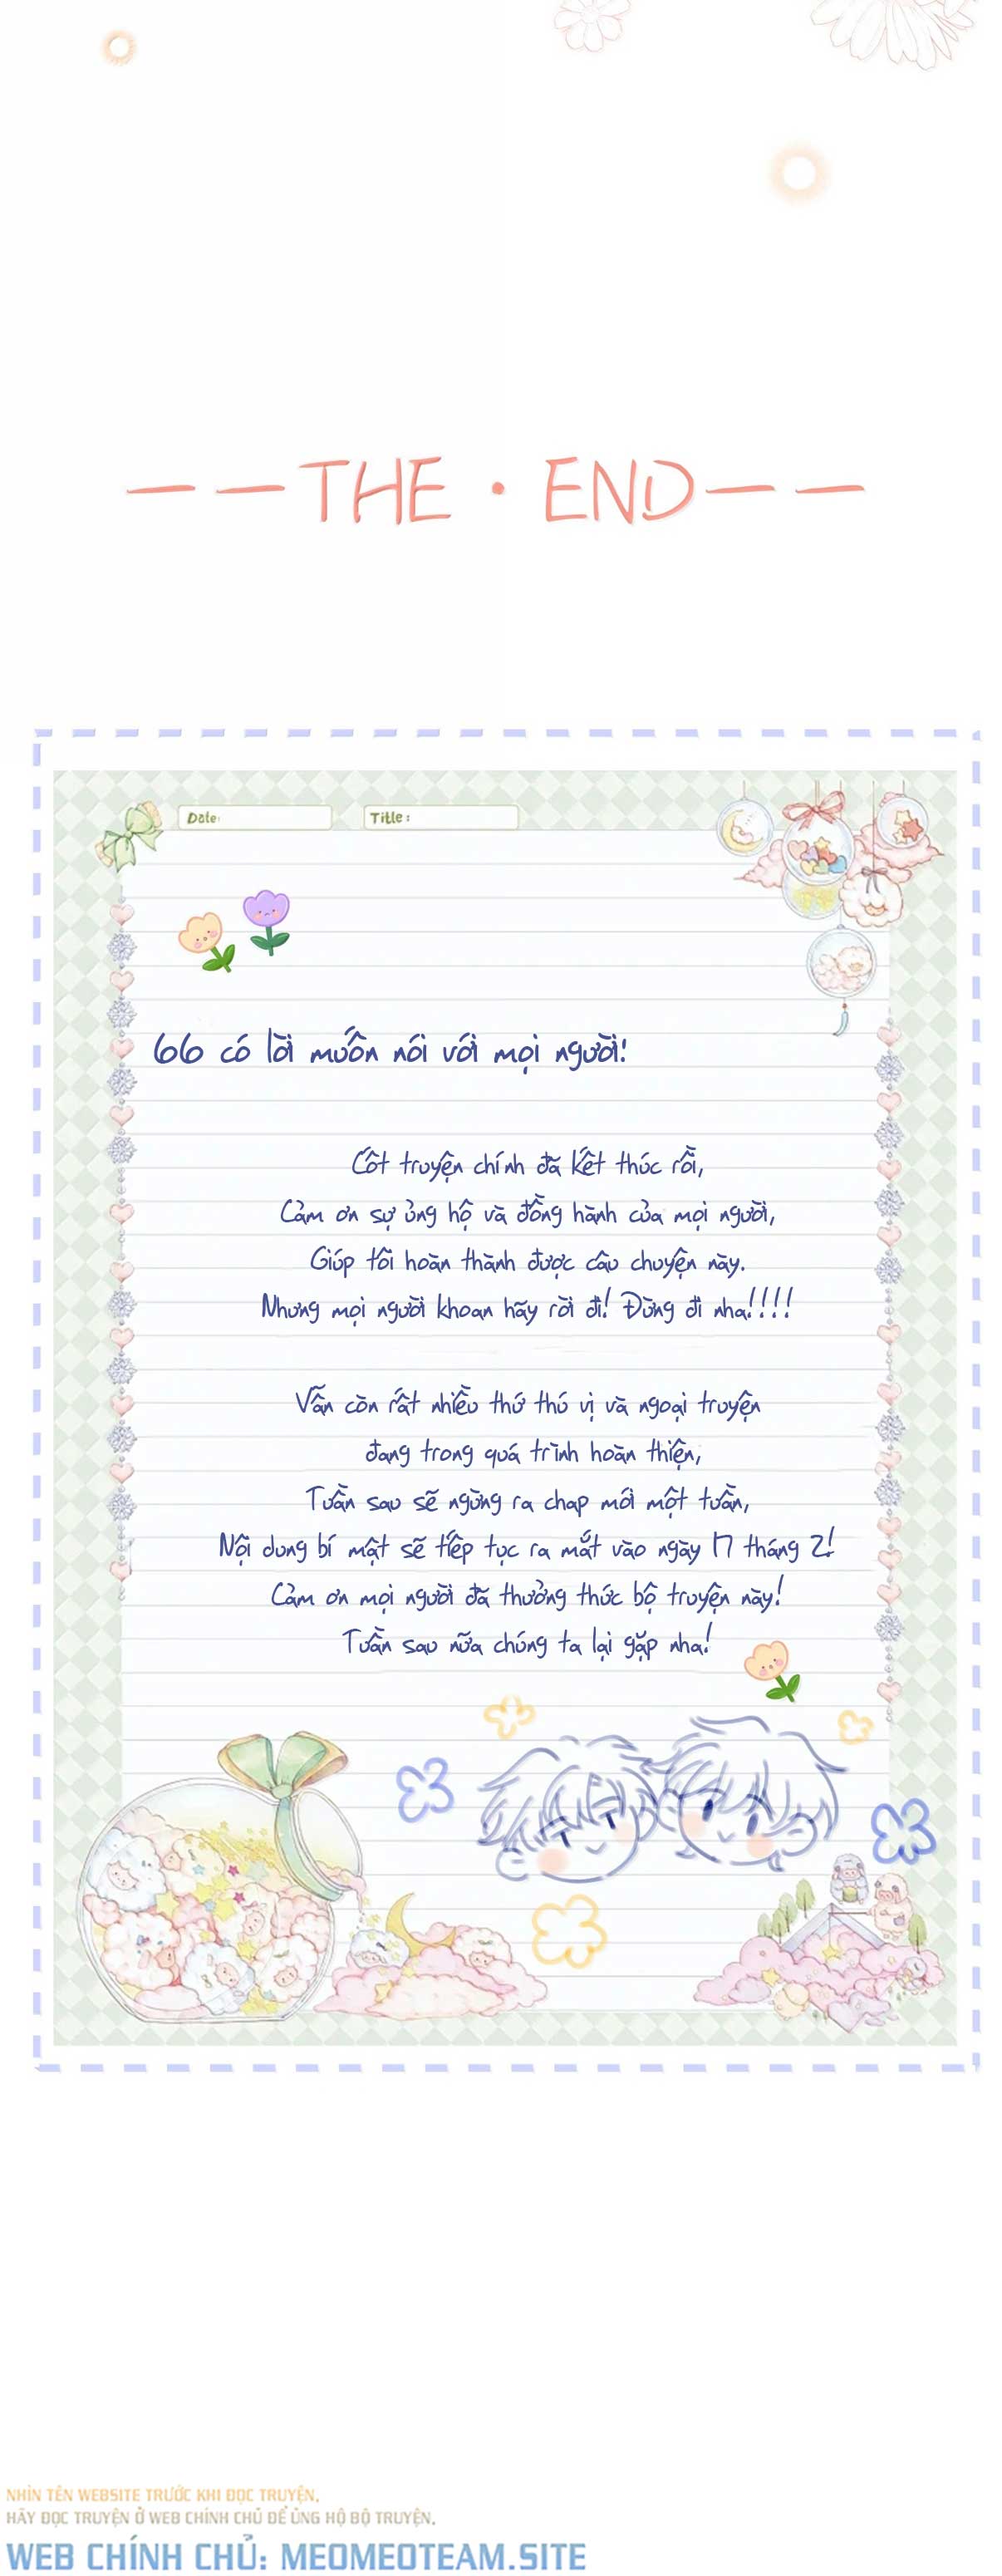 ——THE · END——
Date:
Title:
66 có lời muốn nói với mọi người!
Cốt truyện chính đã kết thúc rồi,
Cảm ơn sự ủng hộ và đồng hành của mọi người,
Giúp tôi hoàn thành được câu chuyện này.
Nhưng mọi người khoan hãy rời đi! Đừng đi nha!!!!
Vẫn còn rất nhiều thứ thú vị và ngoại truyện
đang trong quá trình hoàn thiện,
Tuần sau sẽ ngừng ra chap mới một tuần,
Nội dung bí mật sẽ tiếp tục ra mắt vào ngày 17 tháng 2!
Cảm ơn mọi người đã thưởng thức bộ truyện này!
Tuần sau nữa chúng ta lại gặp nha!
NHÌN TÊN WEBSITE TRƯỚC KHI ĐỌC TRUYỆN,
HÃY ĐỌC TRUYỆN Ở WEB CHÍNH CHỦ ĐỂ ỦNG HỘ BỘ TRUYỆN,
WEB CHÍNH CHỦ: MEOMEOTEAM.SITE